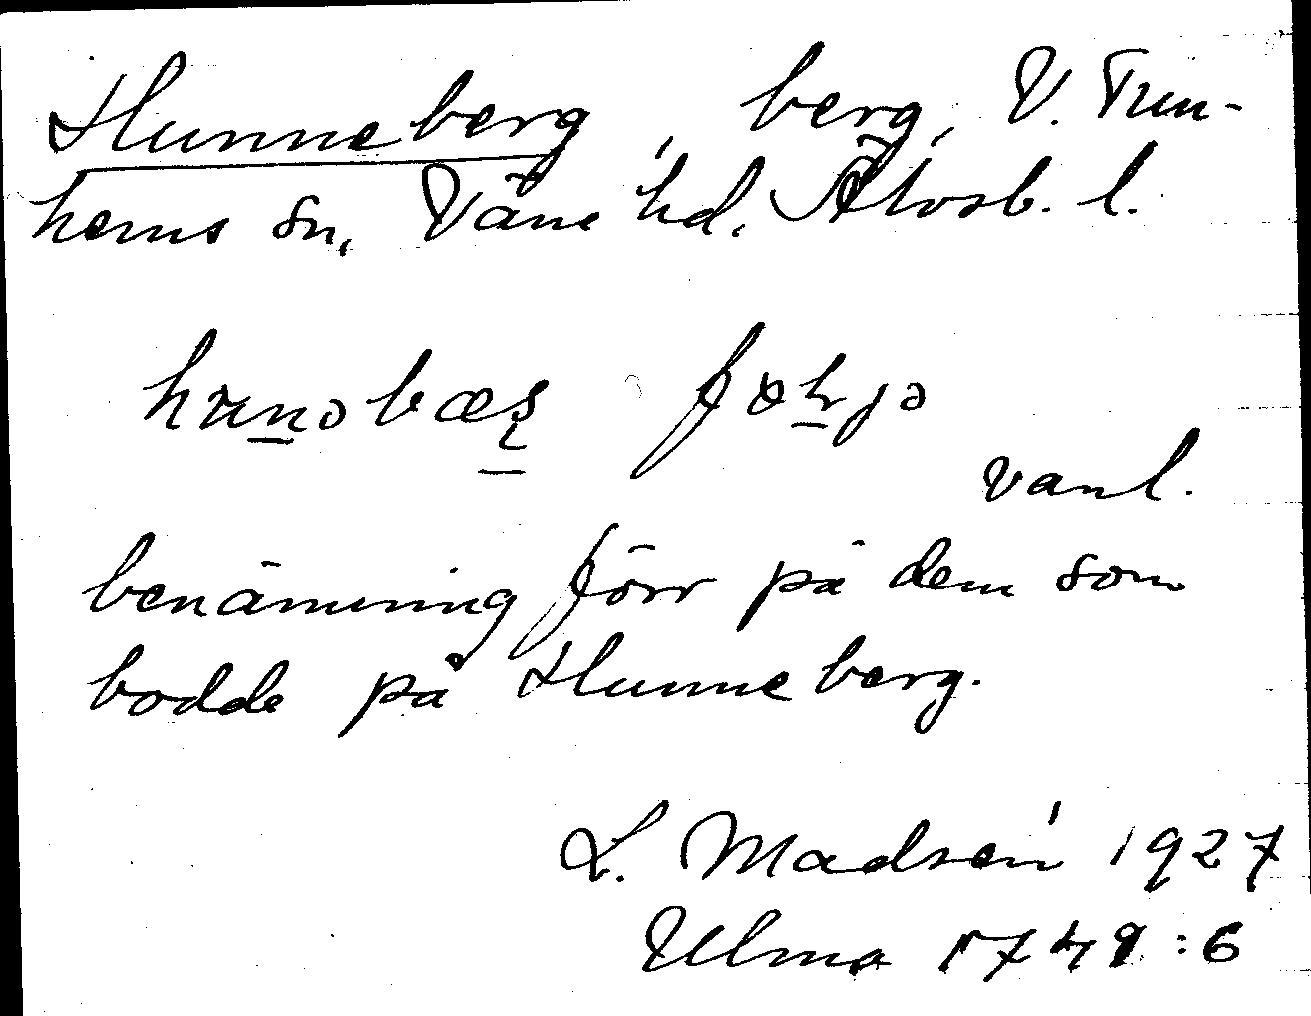 Hunneberg, berg, V. Tun-
hems sn, Väne hd. Älvsb. l.
vanl.
benämning förr på dem som
bodde på Hunneberg.
L. Madsén 1927
Ulma 1749:6